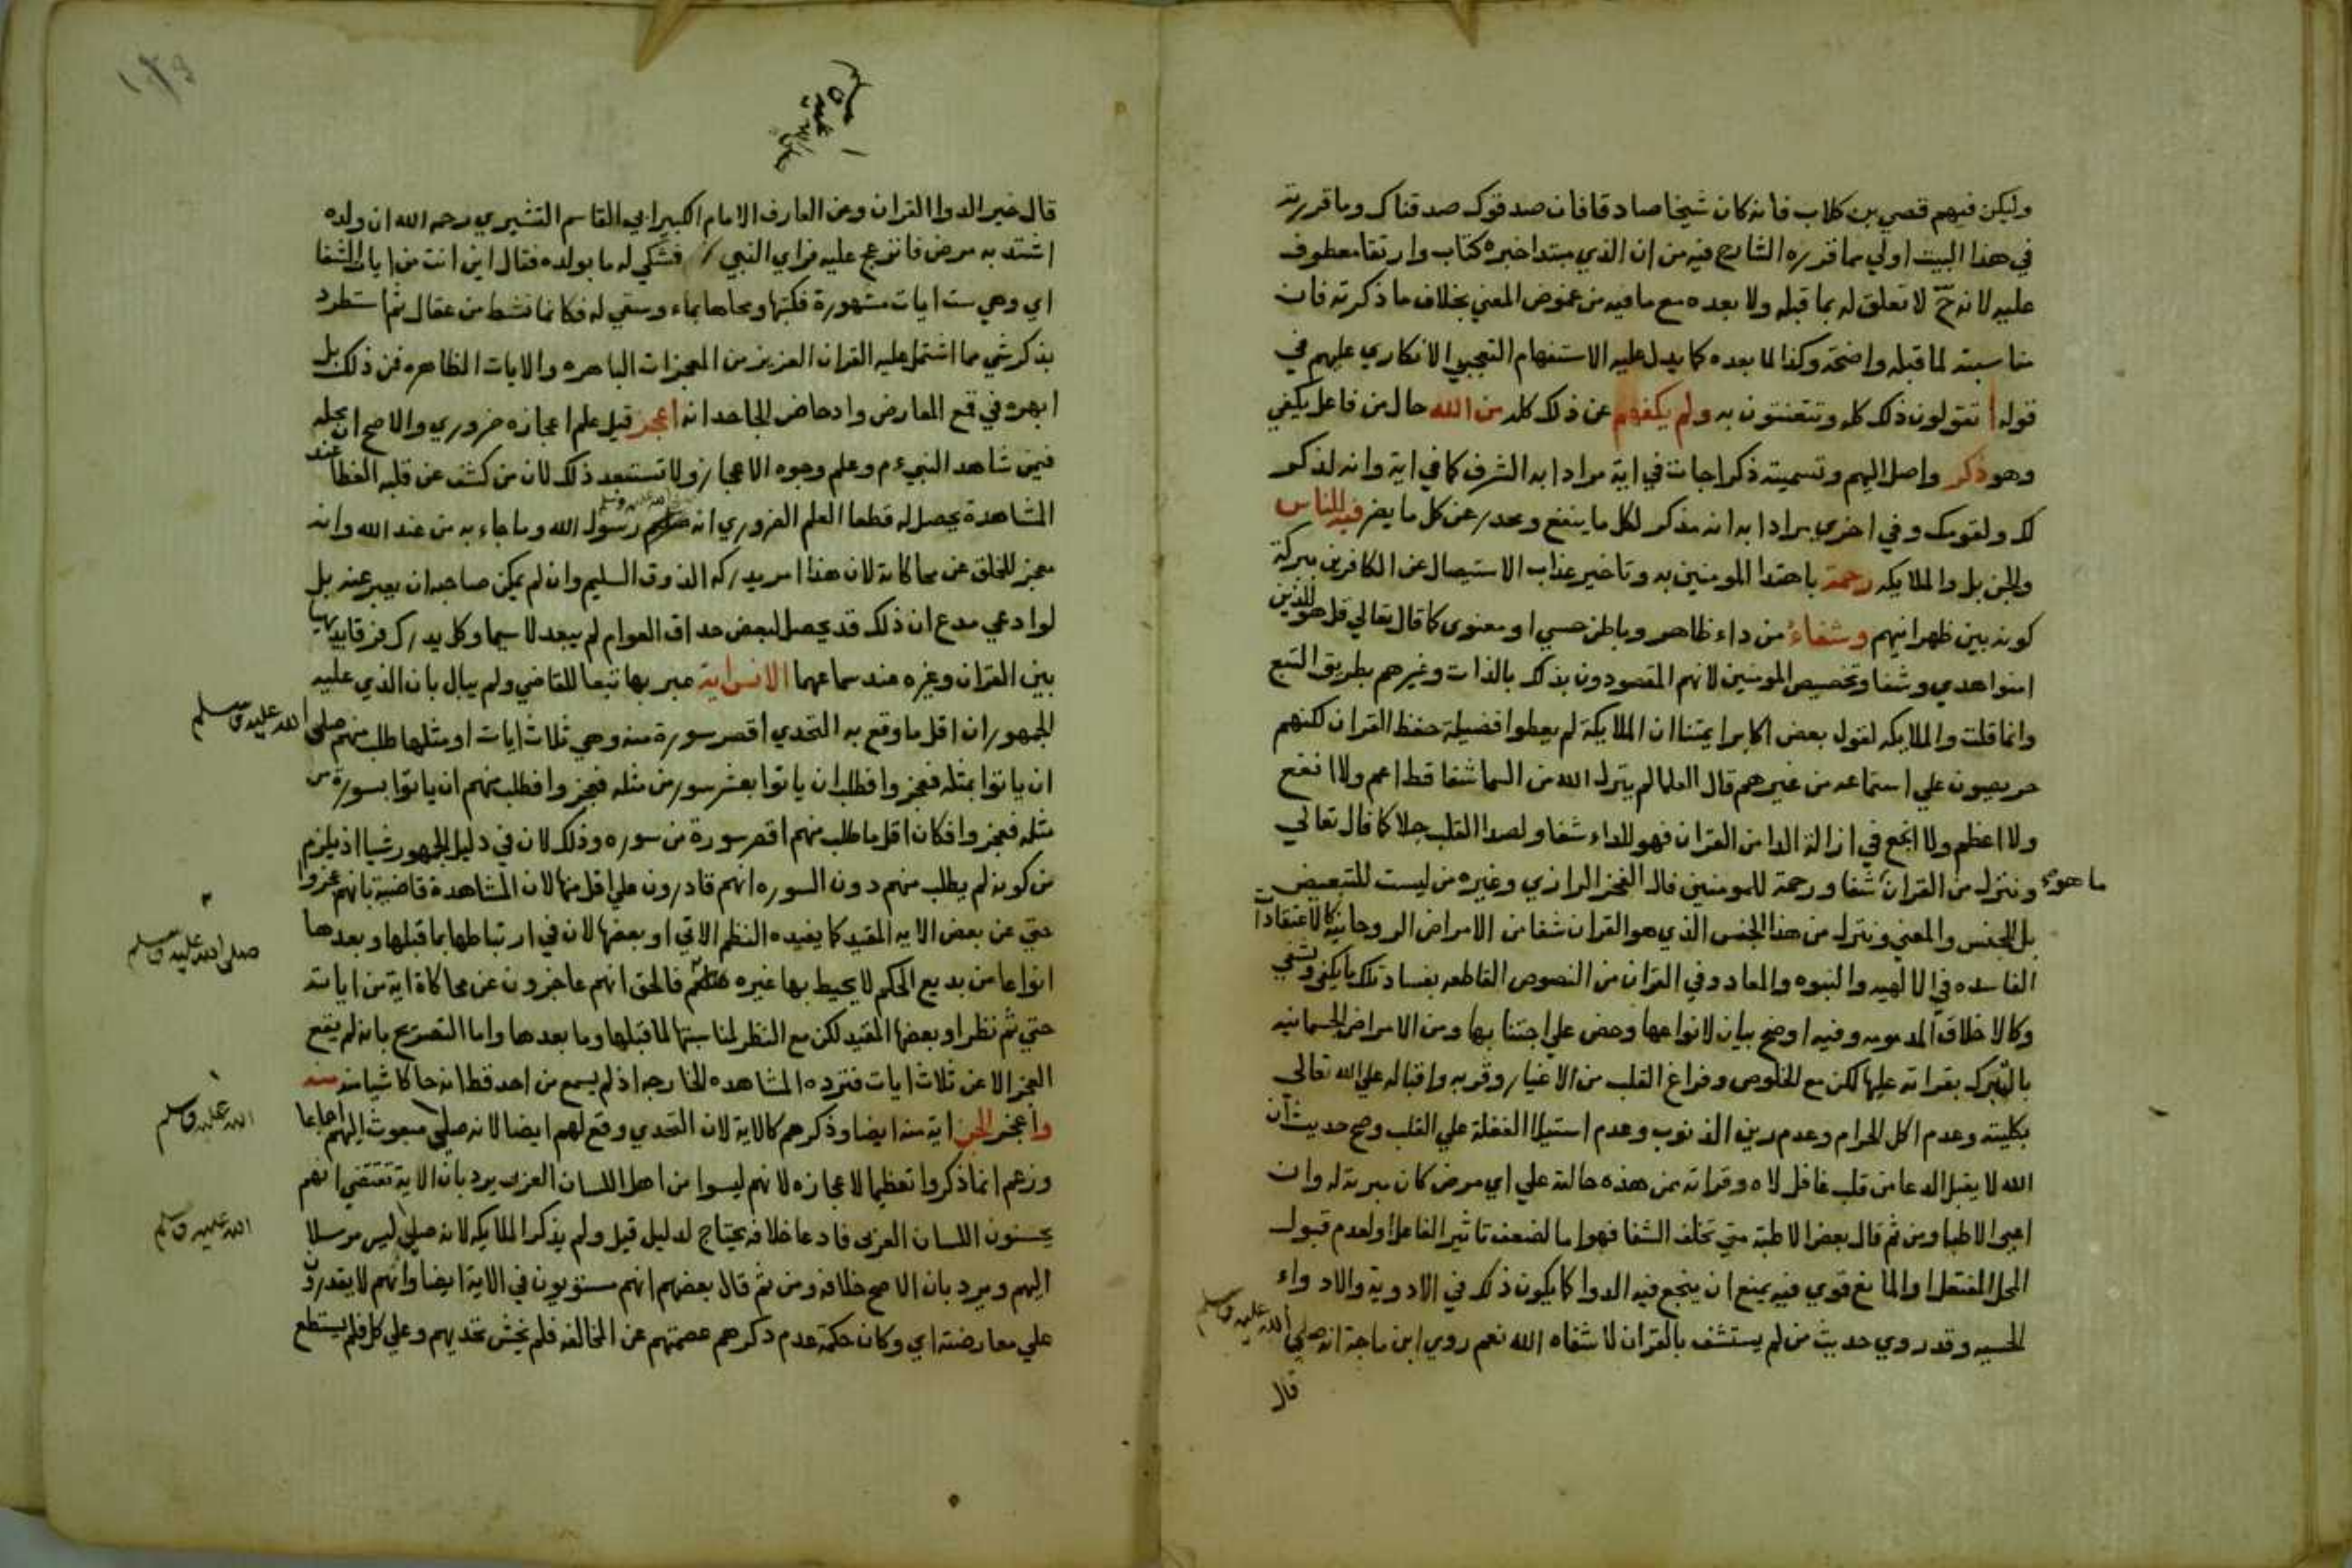 وليكن فيهم قصي بن كلاب فانه كان شيخا صادقا فان صدقوك صدقناك وما قررته
في هذا البيت اولي مما قرره الشارح فيه من ان الذي مبتدا خبره كتاب وارتقا معطوف
عليه لانه ح لا تعلق له بما قبله ولا بعده مع ما فيه من غموض المعني بخلاف ما ذكرته فان
مناسبته لما قبله واضحة وكذا لما بعده كما يدل عليه الاستفهام التعجبي الانكاري عليهم في
قوله اتقولون ذلك كله وتتعنتون به ولم يكفهم عن ذلك كله من الله حال من فاعل يكفي
وهو ذكر واصل اليهم وتسميته ذكرا جات في اية مرادا به الشرف كما في اية وانه لذكر
لك ولقومك وفي اخري مرادا به انه مذكر لكل ما ينفع ومحذر عن كل ما يضر فيه للناس
والجن بل والملايكه رحمة باهتدا المومنين به وتاخير عذاب الاستيصال عن الكافرين ببركة
كونه بين ظهرانيهم وشفاء من داء ظاهر وباطن حسي او معنوي كما قال تعالي قل هو للذين
امنوا هدي وشفا وتخصيص المومنين لانهم المقصودون بذلك بالذات وغيرهم بطريق التبع
وانما قلت والملايكه لقول بعض اكابر ايمتنا ان الملايكة لم يعطوا فضيلة حفظ القران لكنهم
حريصون علي استماعه من غيرهم قال العلما لم ينزل الله من السما شفا قط اعم ولا انفع
ولا اعظم ولا انجع في ازالة الدا من القران فهو للداء شفا ولصدا القلب جلا كما قال تعالي
وننزل من القران ما هو شفا ورحمة للمومنين قال الفخر الرازي وغيره من ليست للتبعيض
بل للجنس والمعني وننزل من هذا الجنس الذي هو القران شفا من الامراض الروحانية كالاعتقادات
الفاسده في الالهيه والنبوه والمعاد وفي القران من النصوص القاطعه بفساد تلك ما يكفي ويشفي
وكالاخلاق المذمومه وفيه اوضح بيان لانواعها وحض علي اجتنابها ومن الامراض الجسمانيه
بالتبرك بقراته عليها لكن مع الخلوص وفراغ القلب من الاغيار وقربه واقباله علي الله تعالي
بكليته وعدم اكل الحرام وعدم رين الذنوب وعدم استيلا الغفلة علي القلب وصح حديث ان
الله لا يقبل الدعا من قلب غافل لاه وقراته ممن هذه حالته علي اي مرض كان مبرية له وان
اعيي الاطبا ومن ثم قال بعض الاطبة متي تخلف الشفا فهو اما لضعف تاثير الفاعل او لعدم قبول
المحل المنفعل او لمانع قوي فيه يمنع ان ينجع فيه الدوا كما يكون ذلك في الادوية والادواء
الحسيه وقد روي حديث من لم يستشف بالقران لا شفاه الله نعم روي ابن ماجة انه صلي الله عليه وسلم
قال
قال خير الدوا القران وعن العارف الامام الكبير ابي القاسم القشيري رحمه الله ان ولده
اشتد به مرض فانزعج عليه فراي النبي فشكي له ما بولده فقال اين انت من ايات الشفا
اي وهي ست ايات مشهورة فكتبها ومحاها بماء وسقي له فكانما نشط من عقال ثم استطرد
بذكر شي مما اشتمل عليه القران العزيز من المعجزات الباهره والايات الظاهره فمن ذلك بل
ابهره في قمع المعارض وادحاض الجاحد انه اعجز قيل علم اعجازه ضروري والاصح ان محله
فيمن شاهد النبي م وعلم وجوه الاعجاز ولا تستبعد ذلك لان من كشف عن قلبه الغطا عند
المشاهدة يحصل له قطعا العلم الضروري انه صلي الله عليه وسلم رسول الله وما جاء به من عند الله وانه
معجز للخلق عن محاكاته لان هذا امر يدركه الذوق السليم وان لم يمكن صاحبه ان يعبر عنه بل
لو ادعي مدع ان ذلك قد يحصل لبعض حذاق العوام لم يبعد لا سيما وكل يدرك فرقا بديهيا
بين القران وغيره عند سماعهما الانس اية عبر بها تبعا للقاضي ولم يبال بان الذي عليه
الجمهور ان اقل ما وقع به التحدي اقصر سورة منه وهي ثلاث ايات او مثلها طلب منهم صلي الله عليه وسلم
ان ياتوا بمثله فعجزوا فطلب ان ياتوا بعشر سور من مثله فعجزوا فطلب منهم ان ياتوا بسورة من
مثله فعجزوا فكان اقل ما طلب منهم اقصر سورة من سوره وذلك لان في دليل الجمهور شيا اذ يلزم
من كونه لم يطلب منهم دون السوره انهم قادرون علي اقل منها لان المشاهدة قاضية بانهم عجزوا
حتي عن بعض الايه المقيد كما يفيده النظم الاتي او بعضها لان في ارتباطها بما قبلها وبعدها
انواعا من بديع الحكم لا يحيط بها غيره صلي الله عليه وسلم فالحق انهم عاجزون عن محاكاة اية من اياته
حتي ثم نظر او بعضها المقيد لكن مع النظر لمناسبتها لما قبلها وما بعدها واما التصريح بانه لم يقع
العجز الا عن ثلاث ايات فترده المشاهده الخارجه اذ لم يسمع من احد قط انه حاكا شيا منه
واعجز الجن اية منه ايضا وذكرهم كالاية لان التحدي وقع لهم ايضا لانه صلي الله عليه وسلم مبعوث اليهم اجماعا
وزعم انما ذكروا تعظيما لاعجازه لانهم ليسوا من اهل اللسان العربي يرد بان الاية تقتضي انهم
يحسنون اللسان العربي فادعا خلافه يحتاج لدليل قيل ولم يذكر الملايكه لانه صلي الله عليه وسلم ليس مرسلا
اليهم ويرد بان الاصح خلافه ومن ثم قال بعضهم انهم منويون في الاية ايضا وانهم لا يقدرون
علي معارضته اي وكان حكمة عدم ذكرهم عصمتهم عن المخالفه فلم يخش تحديهم وعلي كل فلم يستطع